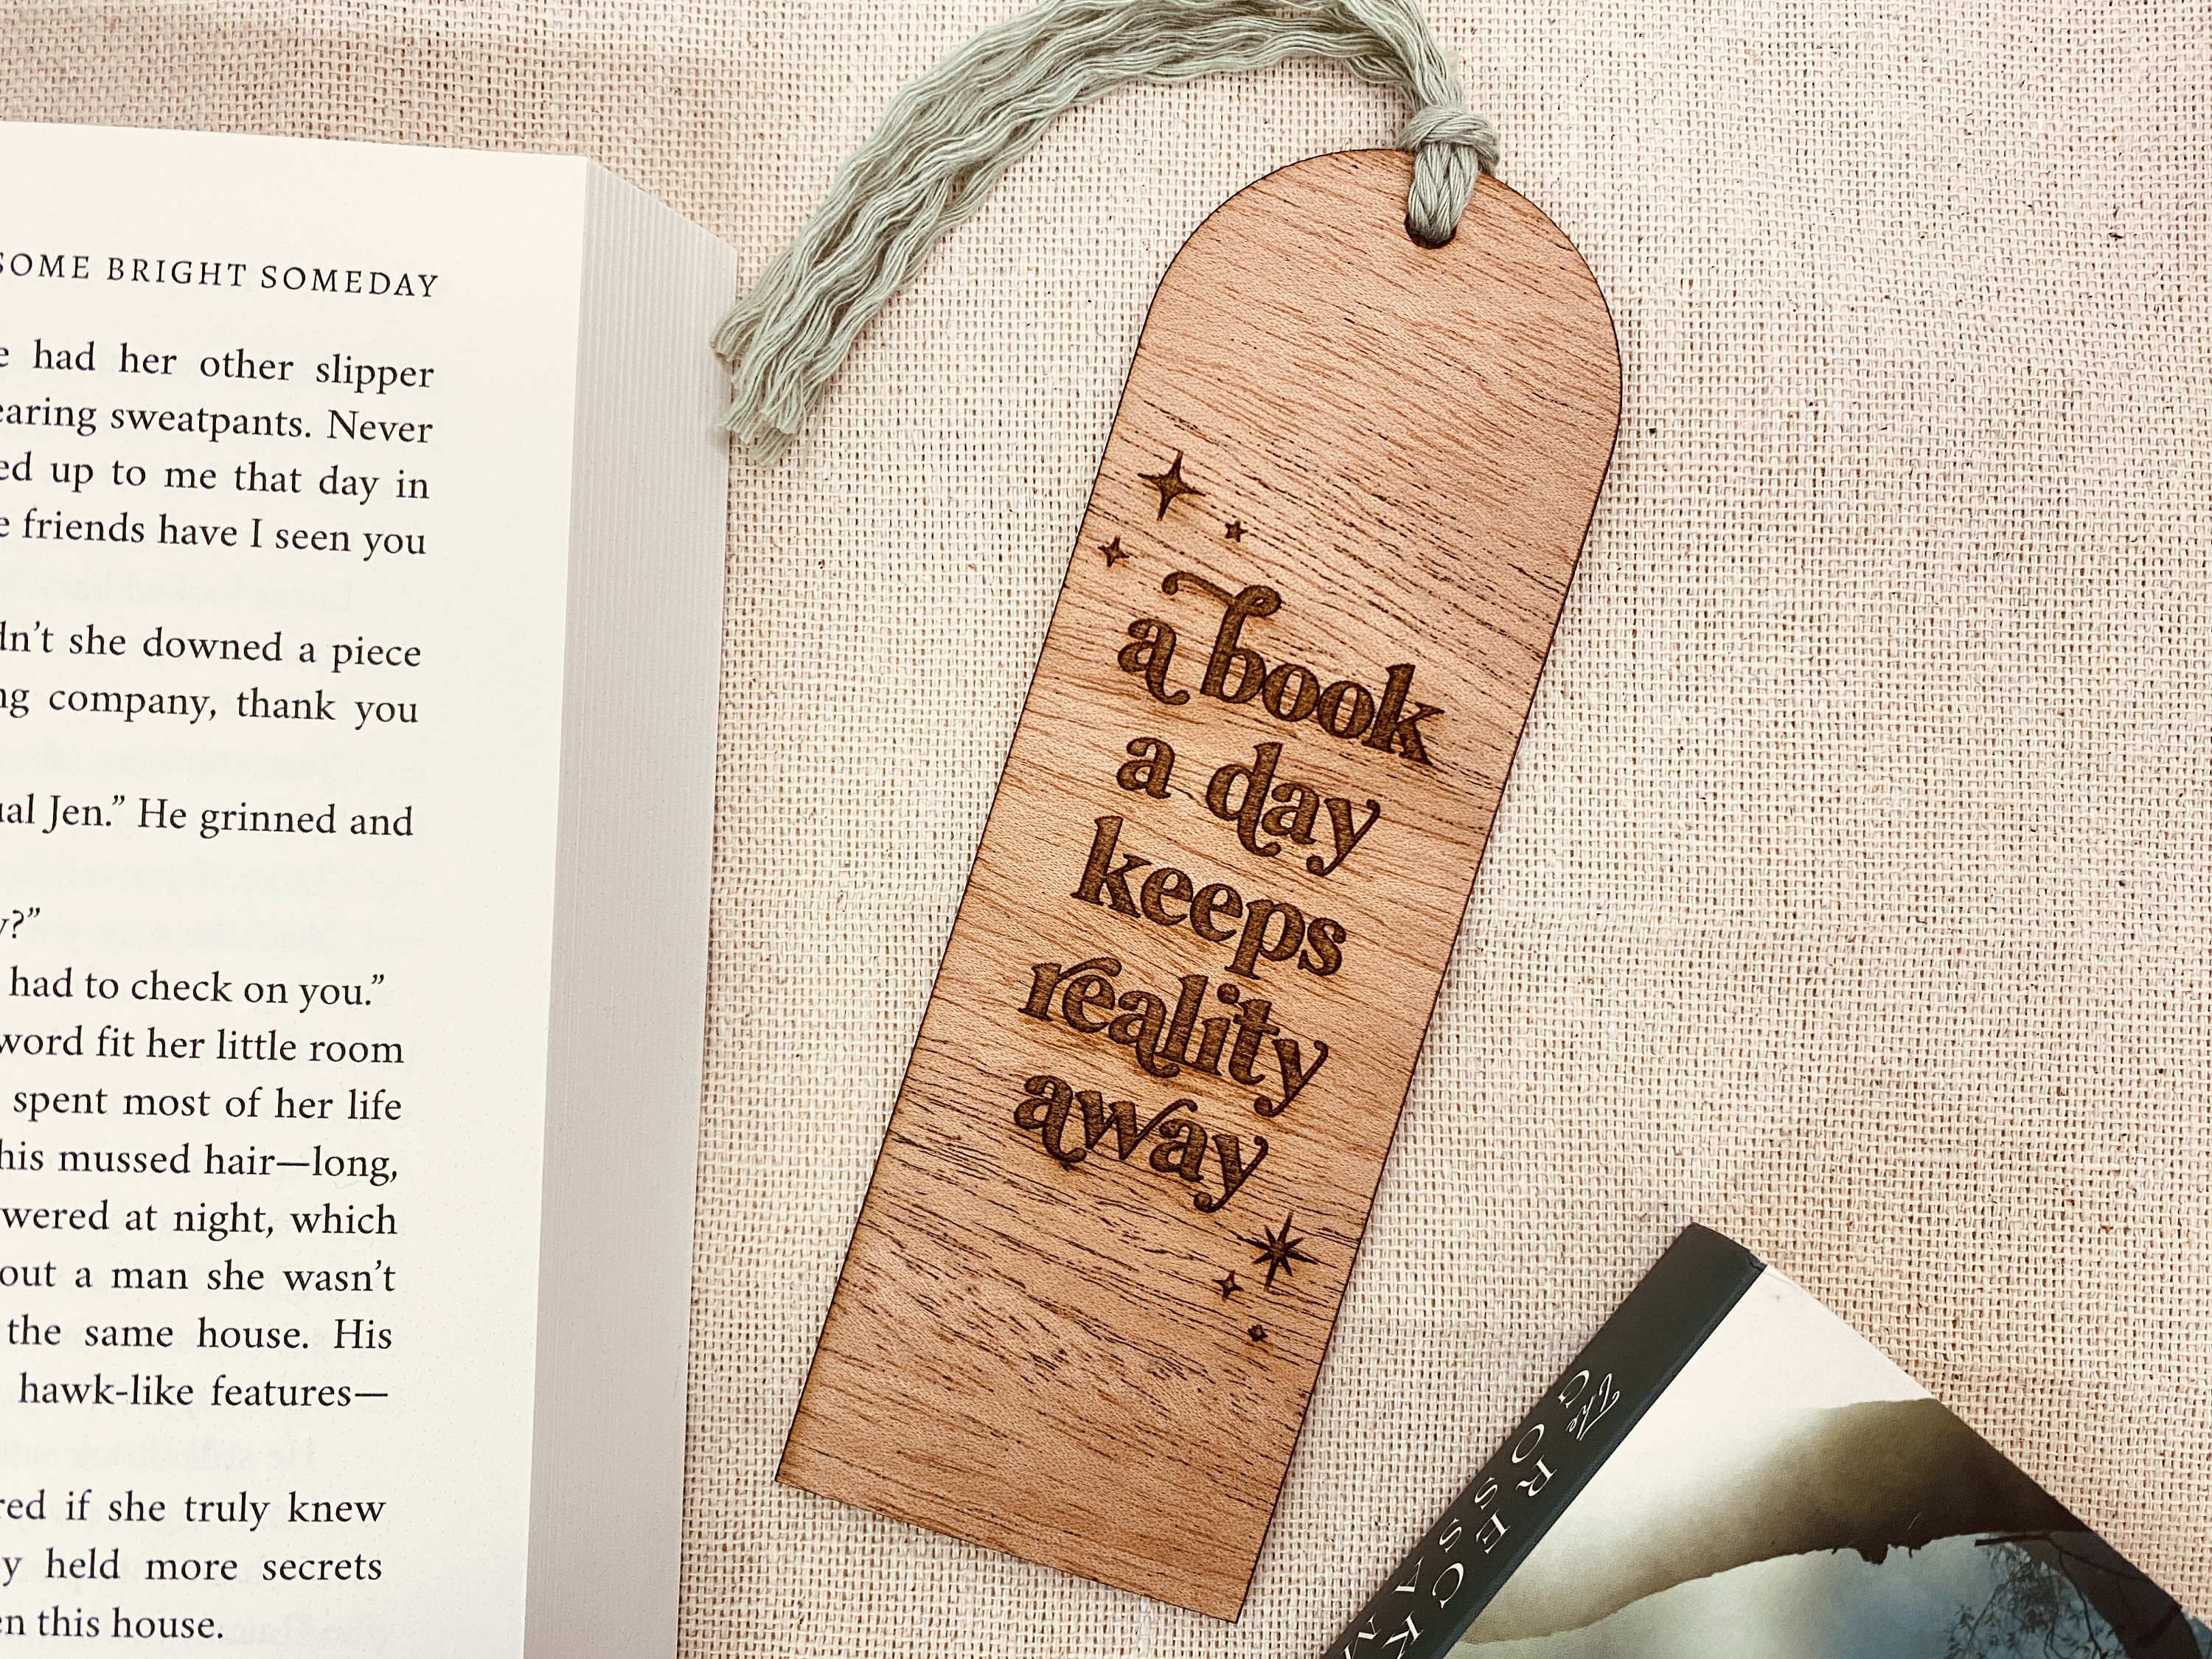 SOME BRIGHT SOMEDAY
had her other slipper
sweatpants. Never
up to me that day in
friends have I seen you
she downed a piece
company, thank you
Jen.” He grinned and
had to check on you.”
word fit her little room
spent most of her life
his mussed hair—long,
at night, which
out a man she wasn’t
the same house. His
hawk-like features—
if she truly knew
held more secrets
this house.
a book
a day
keeps
reality
away
The
RECK
GOSSAM